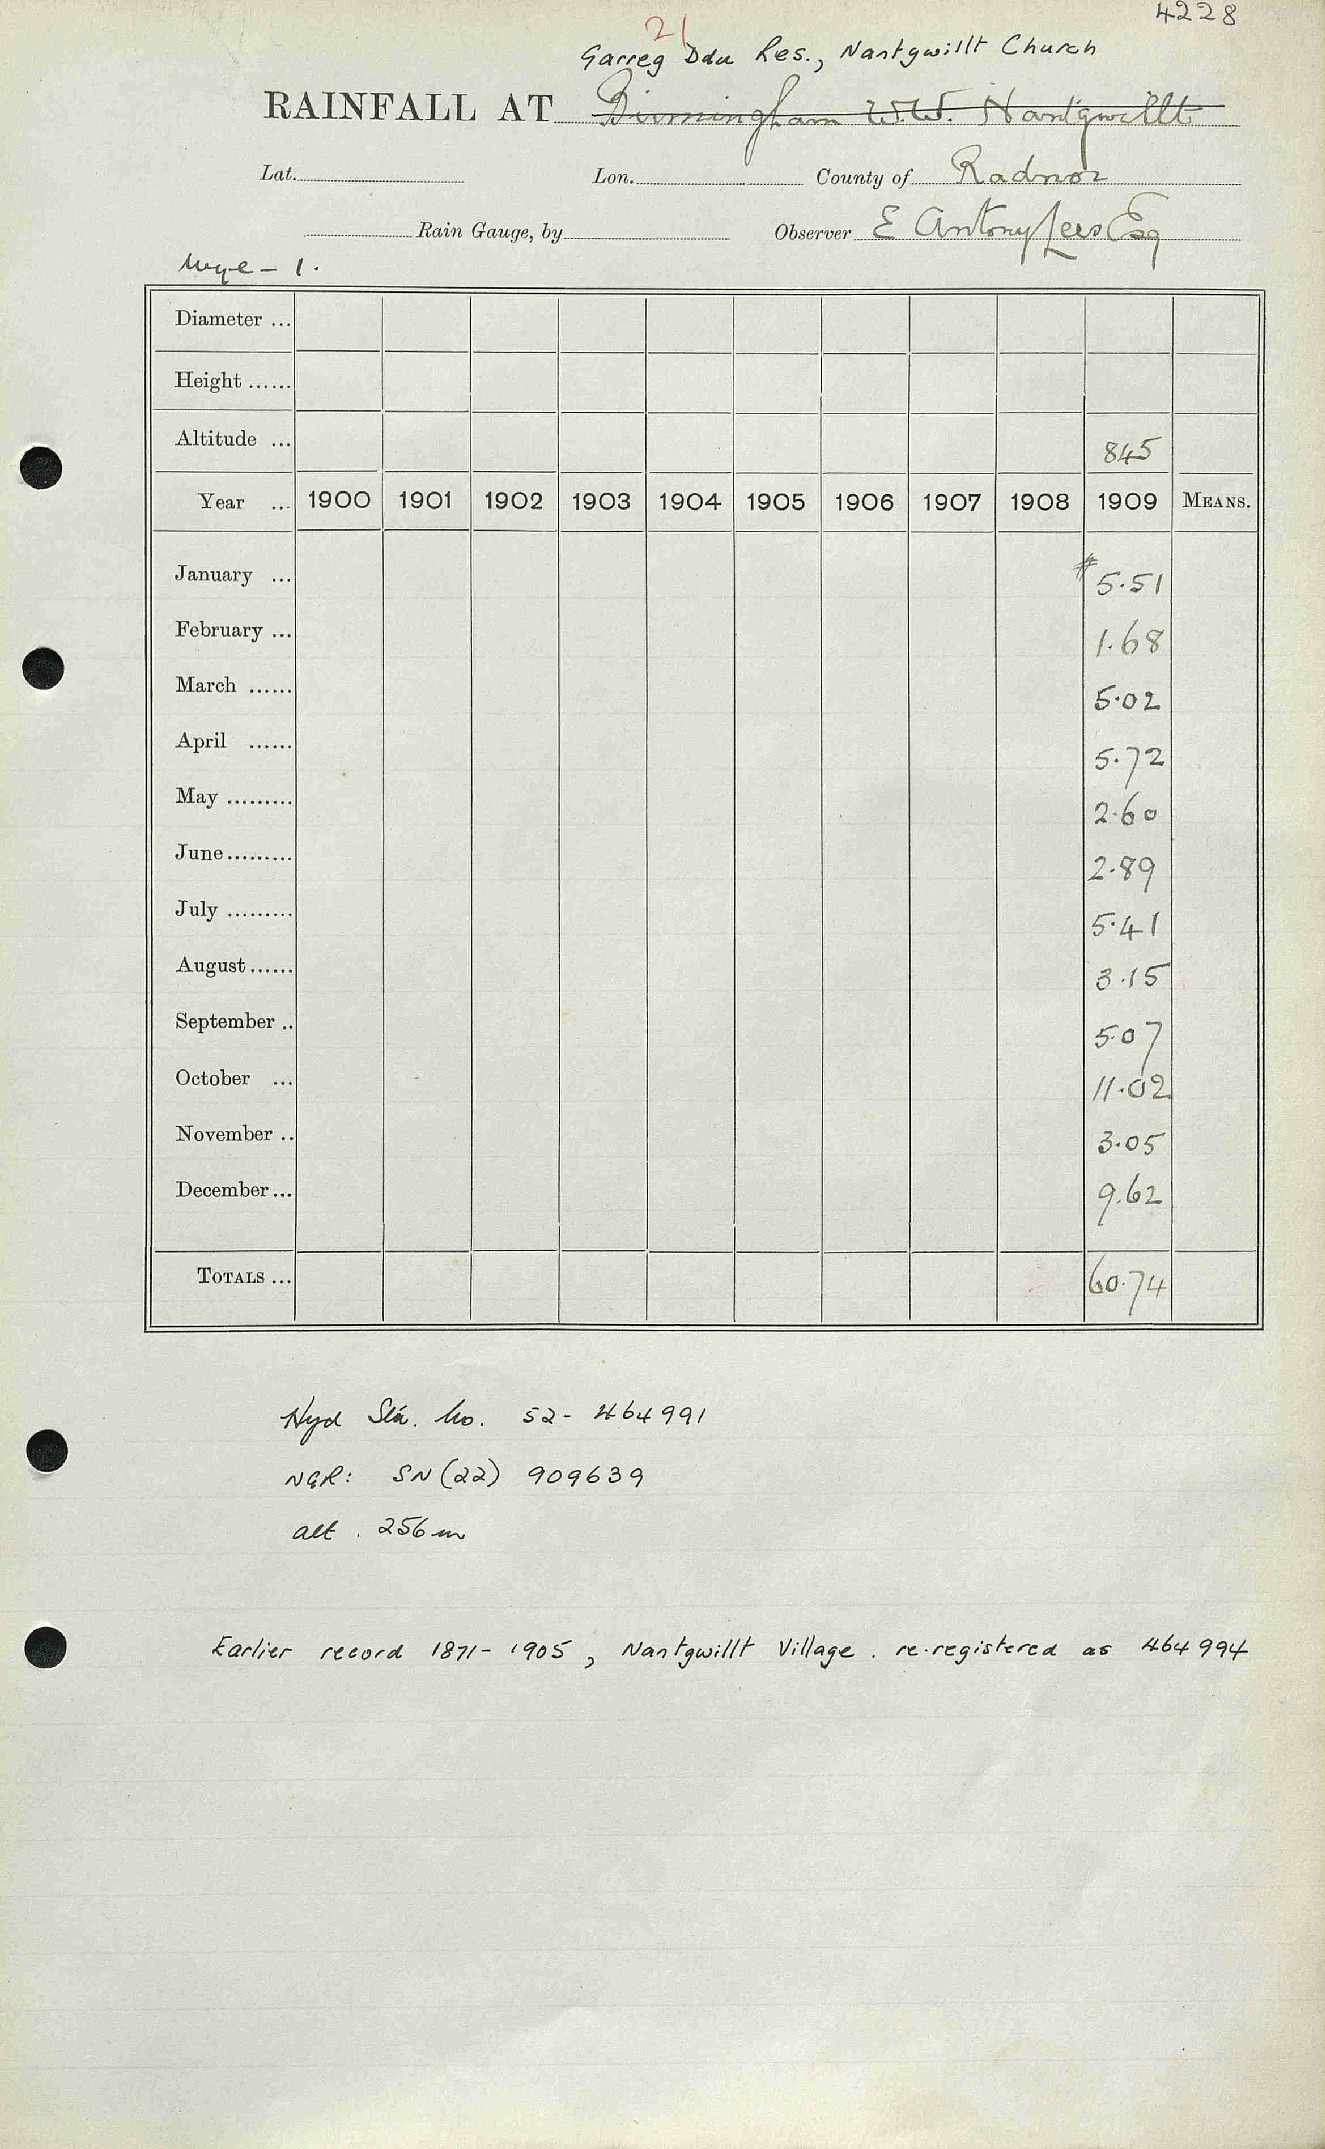 4228
21
Garreg Ddu Res., Nantgwillt Church
RAINFALL AT Birmingham W.W. Nantgwillt
Lat. Lon. County of Radnor
Rain Gauge, by Observer E Antony Lees Esq
Wye - 1.
Diameter ...
Height ......
Altitude ... 845
Year ... 1900 1901 1902 1903 1904 1905 1906 1907 1908 1909 MEANS.
January ... # 5.51
February ... 1.68
March ...... 5.02
April ...... 5.72
May ......... 2.60
June......... 2.89
July ......... 5.41
August...... 3.15
September .. 5.07
October ... 11.02
November .. 3.05
December... 9.62
TOTALS ... 60.74
Hyd Sta. No. 52- 464991
NGR: SN (22) 909639
alt. 256 m
Earlier record 1871- 1905, Nantgwillt Village. re-registered as 464994